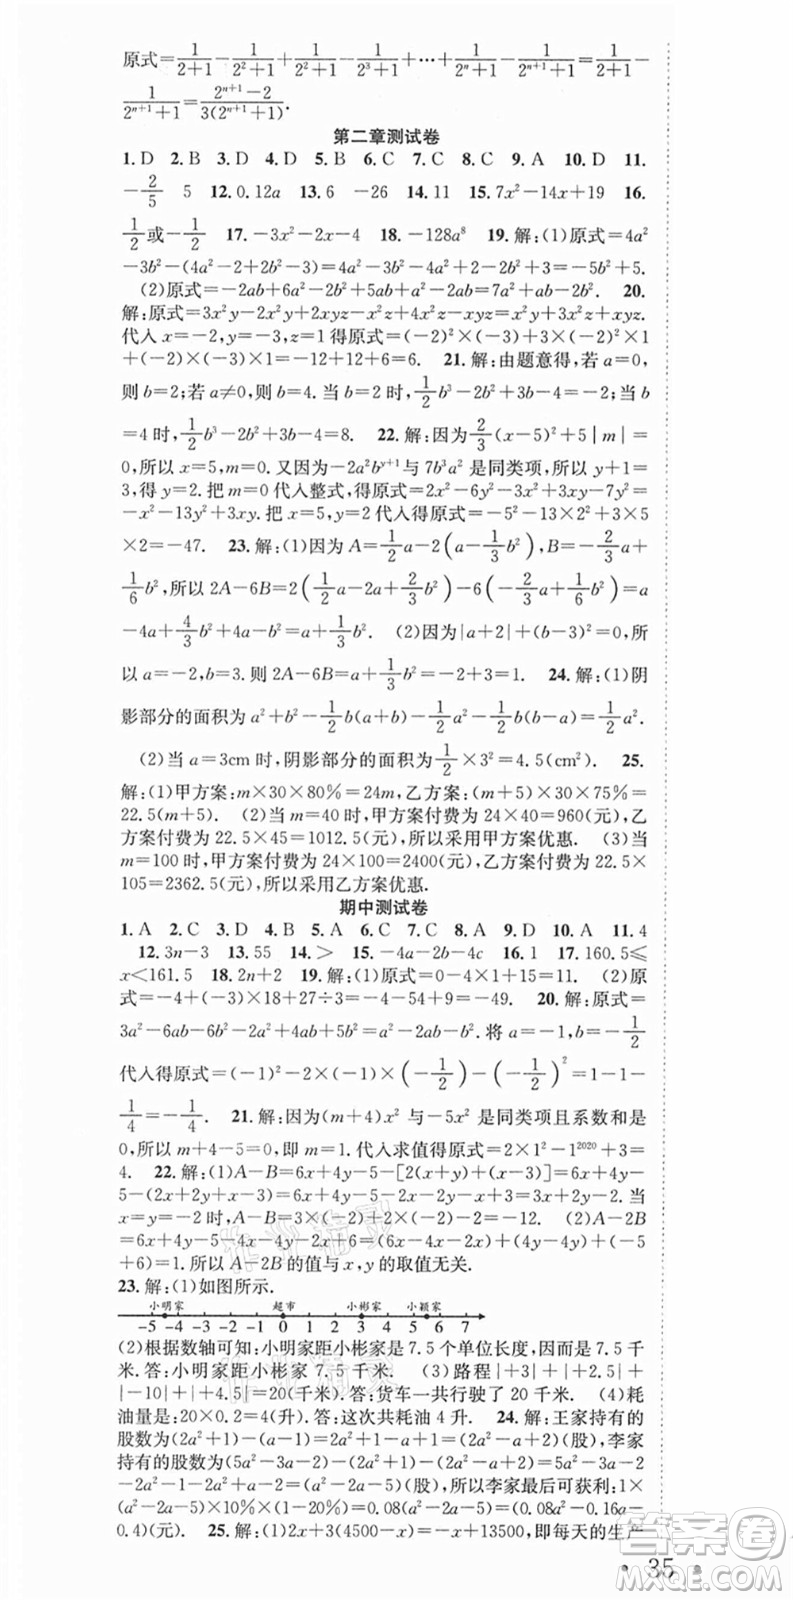 原式=1/(2+1)-1/(2²+1)+1/(2²+1)-1/(2³+1)+…+1/(2ⁿ+1)-1/(2ⁿ⁺¹+1)=1/(2+1)-
1/(2ⁿ⁺¹+1)=(2ⁿ⁺¹-2)/(3(2ⁿ⁺¹+1)).
第二章测试卷
1. D 2. B 3. D 4. D 5. B 6. C 7. C 8. C 9. A 10. D 11.
-2/5 5 12. 0.12a 13. 6 -26 14. 11 15. 7x²-14x+19 16.
1/2或-1/2 17. -3x²-2x-4 18. -128a⁸ 19. 解:(1)原式=4a²
-3b²-(4a²-2+2b²-3)=4a²-3b²-4a²-2b²+2+3=-5b²+5.
(2)原式=-2ab+6a²-2b²+5ab+a²-2ab=7a²+ab-2b². 20.
解:原式=3x²y-2x²y+2xyz-x²z+4x²z-xyz=x²y+3x²z+xyz.
代入x=-2,y=-3,z=1得原式=(-2)²×(-3)+3×(-2)²×1
+(-2)×(-3)×1=-12+12+6=6. 21. 解:由题意得,若a=0,
则b=2;若a≠0,则b=4. 当b=2时,1/2b³-2b²+3b-4=-2;当b
=4时,1/2b³-2b²+3b-4=8. 22. 解:因为2/3(x-5)²+5|m|=
0,所以x=5,m=0. 又因为-2a²bʸ⁺¹与7b³a²是同类项,所以y+1=
3,得y=2. 把m=0代入整式,得原式=2x²-6y²-3x²+3xy-7y²=
-x²-13y²+3xy. 把x=5,y=2代入得原式=-5²-13×2²+3×5
×2=-47. 23. 解:(1)因为A=1/2a-2(a-1/3b²),B=-2/3a+
1/6b²,所以2A-6B=2(1/2a-2a+2/3b²)-6(-2/3a+1/6b²)=a
-4a+4/3b²+4a-b²=a+1/3b². (2)因为|a+2|+(b-3)²=0,所
以a=-2,b=3. 则2A-6B=a+1/3b²=-2+3=1. 24. 解:(1)阴
影部分的面积为a²+b²-1/2b(a+b)-1/2b²-1/2a(a-b)=1/2a².
(2)当a=3cm时,阴影部分的面积为1/2×3²=4.5(cm²) 25.
解:(1)甲方案:m×30×80%=24m,乙方案:(m+5)×30×75%=
22.5(m+5). (2)当m=40时,甲方案付费为24×40=960(元),乙
方案付费为22.5×45=1012.5(元),所以采用甲方案优惠. (3)当
m=100时,甲方案付费为24×100=2400(元),乙方案付费为22.5×
105=2362.5(元),所以采用乙方案优惠.
期中测试卷
1. A 2. C 3. D 4. B 5. C 6. A 7. A 8. A 9. D 10. A 11. 4
12. 3n-3 13. 55 14. > 15. -4a-2b-4c 16. 1 17. 160.5≤
x<161.5 18. 2n+2 19. 解:(1)原式=0-4×1+15=11. (2)原
式=-4+(-3)×18+27÷3=-4-54+9=-49. 20. 解:原式=
3a²-6ab-6b²-2a²+4ab+5b²=a²-2ab-b². 将a=-1,b=-1/2
代入得原式=(-1)²-2×(-1)×(-1/2)-(-1/2)²=1-1-
1/4=-1/4. 21. 解:因为(m+4)x²与-5x²是同类项且系数和是
0,所以m+4-5=0,即m=1. 代入求值得原式=2×1²-1²⁰²⁰+3=
4. 22. 解:(1)A-B=6x+4y-5-[2(x+y)+(x+3)]=6x+4y
-5-(2x+2y+x+3)=6x+4y-5-2x-2y-x-3=3x+2y-8. 当
x=-2,y=1时,A-B=3×(-2)+2-8=-12. (2)A-2B
=6x+4y-5-2(3x+2y-3)=6x+4y-5-6x-4y+6=(-5
+6)=1. 所以A-2B的值与x,y的取值无关.
23. 解:(1)如图所示.
小明家 超市 小彬家 小颖家
-5 -4 -3 -2 -1 0 1 2 3 4 5 6 7
(2)根据数轴可知:小明家距小彬家是7.5个单位长度,因而是7.5千
米. 答:小明家距小彬家7.5千米. (3)路程|+3|+|+2.5|+
|-10|+|+4.5|=20(千米). 答:货车一共行驶了20千米. (4)耗
油量是:20×0.2=4(升). 答:这次共耗油4升. 24. 解:王家持有的
股数为(2a²+1)-(a-1)=2a²+1-a+1=2a²-a+2(股),李家
持有的股数为(5a²-3a-2)-(2a²+1)-(2a²-a+2)=5a²-3a-2
-2a²-1-2a²+a-2=(a²-2a-5)(股),所以李家最后可获利:1×
(a²-2a-5)×10%×(1-20%)=0.08(a²-2a-5)=(0.08a²-0.16a-
0.4)(元). 25. 解:(1)2x+3(4500-x)=-x+13500,即每天的生产
· 35 ·
作业精灵
作业精灵
答案圈
MXQE.COM